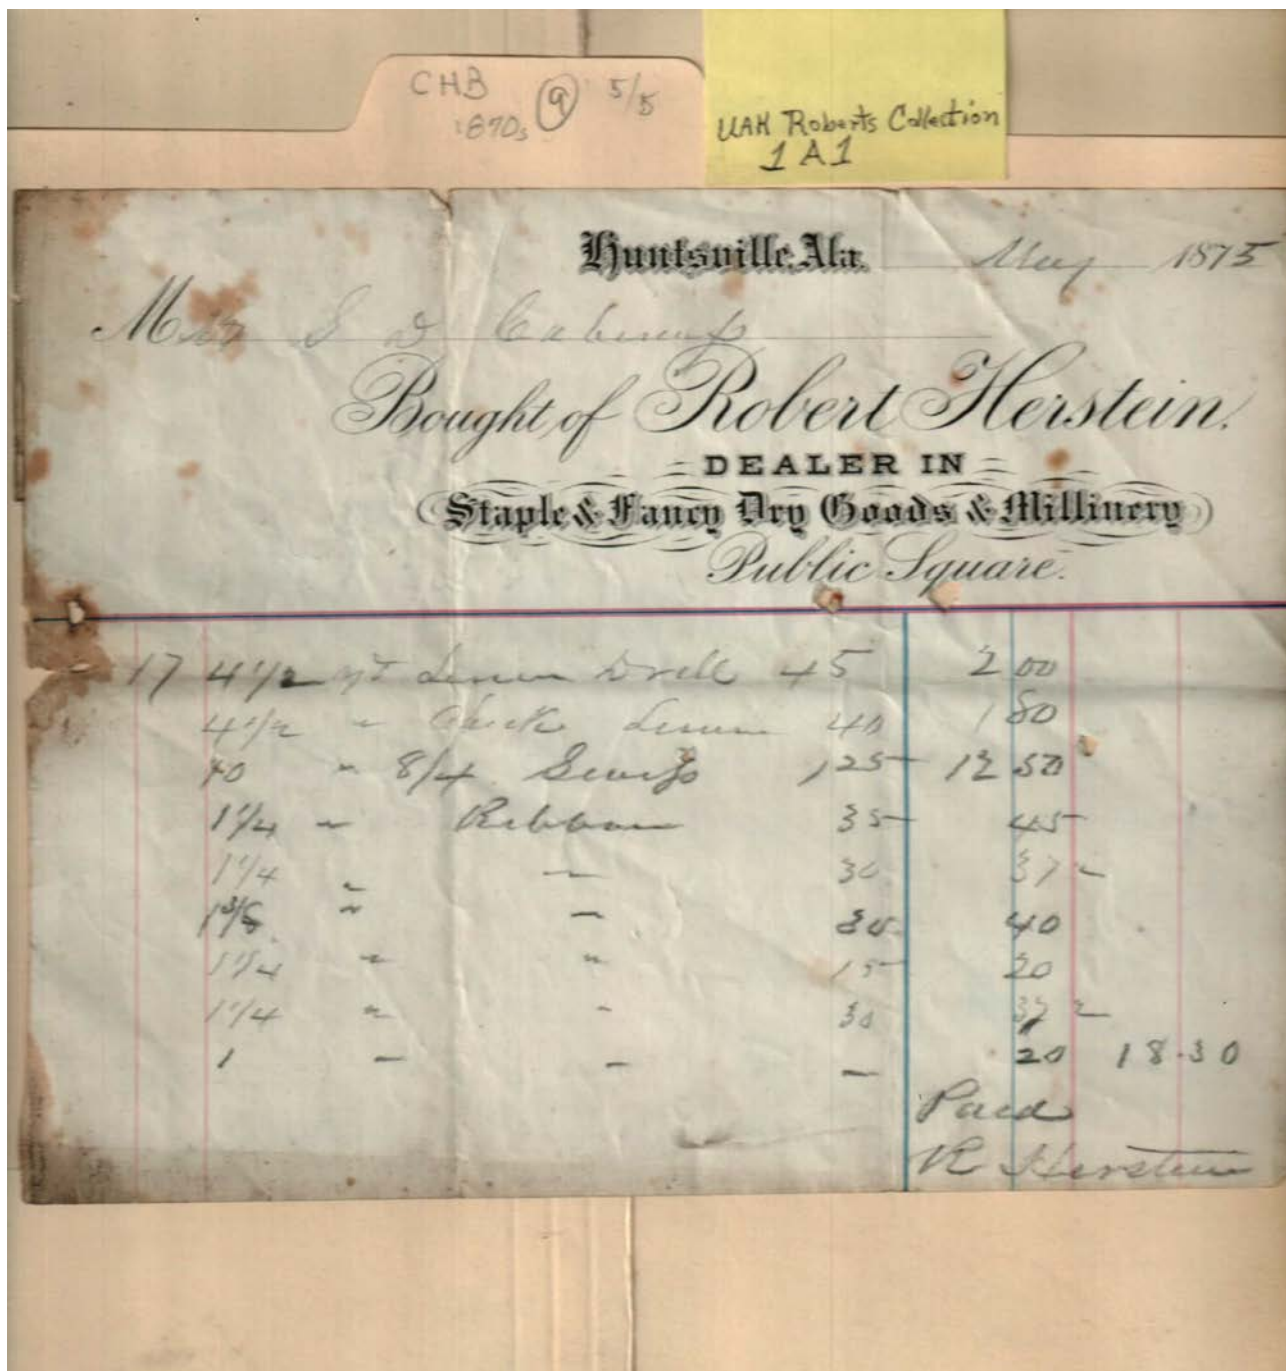 CHB 9 5/5
1870s
UAH Roberts Collection
1 A 1
Huntsville, Ala. May 1875
Miss S D Cabiness
Bought of Robert Herstein.
DEALER IN
Staple & Fancy Dry Goods & Millinery
Public Square.
17 4 1/2 yd Linen Drill 45 2 00
4 1/2 " Check Linen 40 1 80
10 " 8/4 Swiss 1 25 12 50
1 1/4 " Ribbon 35 45
1 1/4 " " 30 37 "
1 3/8 " " 30 40
1 1/4 " " 15 20
1 1/4 " " 30 37 "
1 " " " 20 18.30
Paid
R Herstein